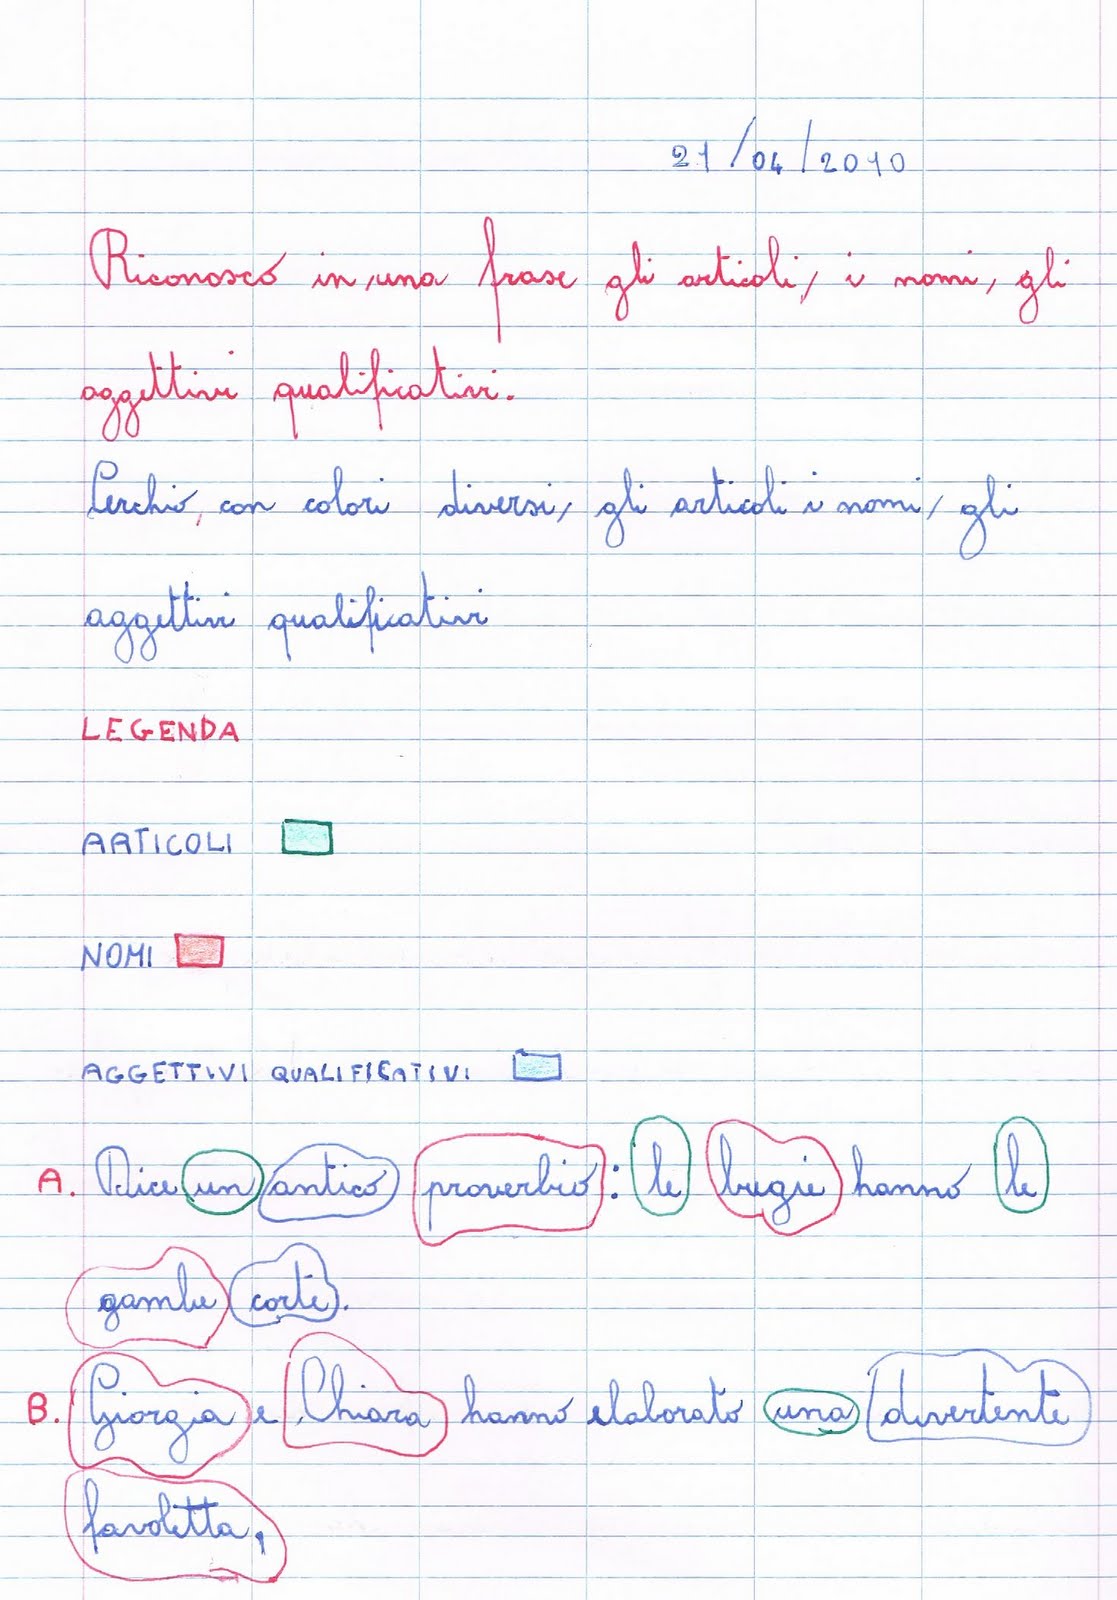 21/04/2010
Riconosco in una frase gli articoli, i nomi, gli
aggettivi qualificativi.
Cerchio, con colori diversi, gli articoli i nomi, gli
aggettivi qualificativi
LEGENDA
ARTICOLI
NOMI
AGGETTIVI QUALIFICATIVI
A. Dice un antico proverbio: le bugie hanno le
gambe corte.
B. Giorgia e Chiara hanno elaborato una divertente
favoletta,